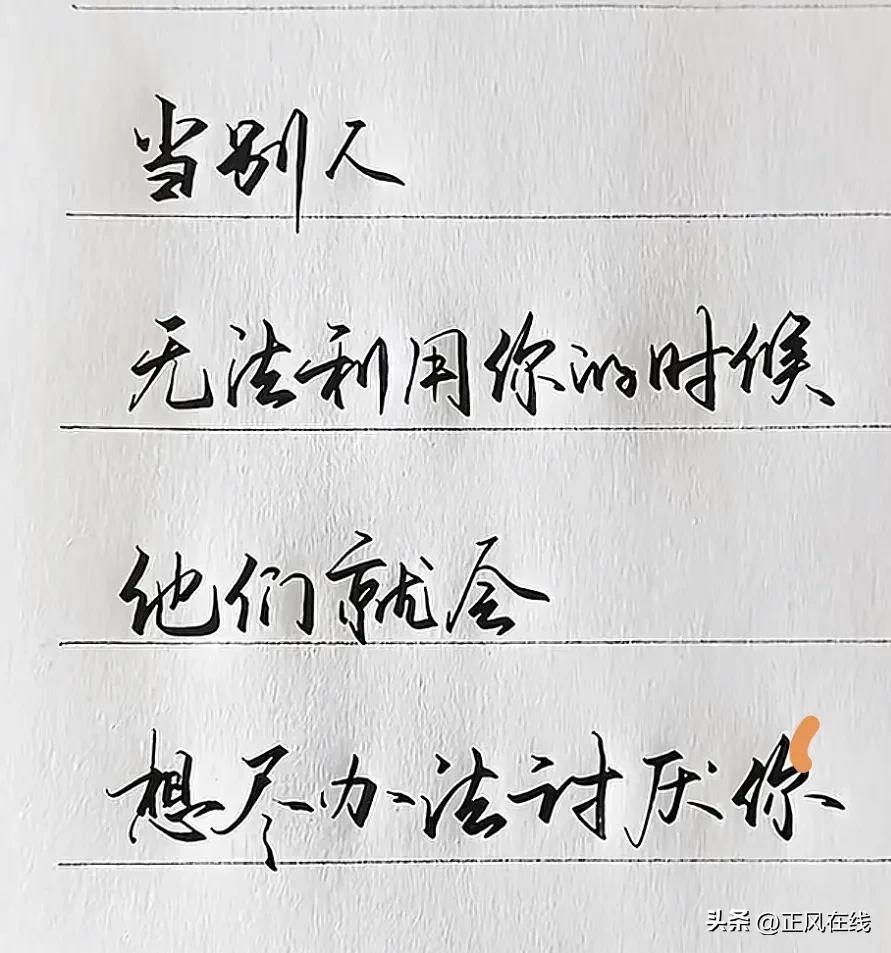 当别人
无法利用你的时候
他们就会
想尽办法讨厌你
头条 @正风在线